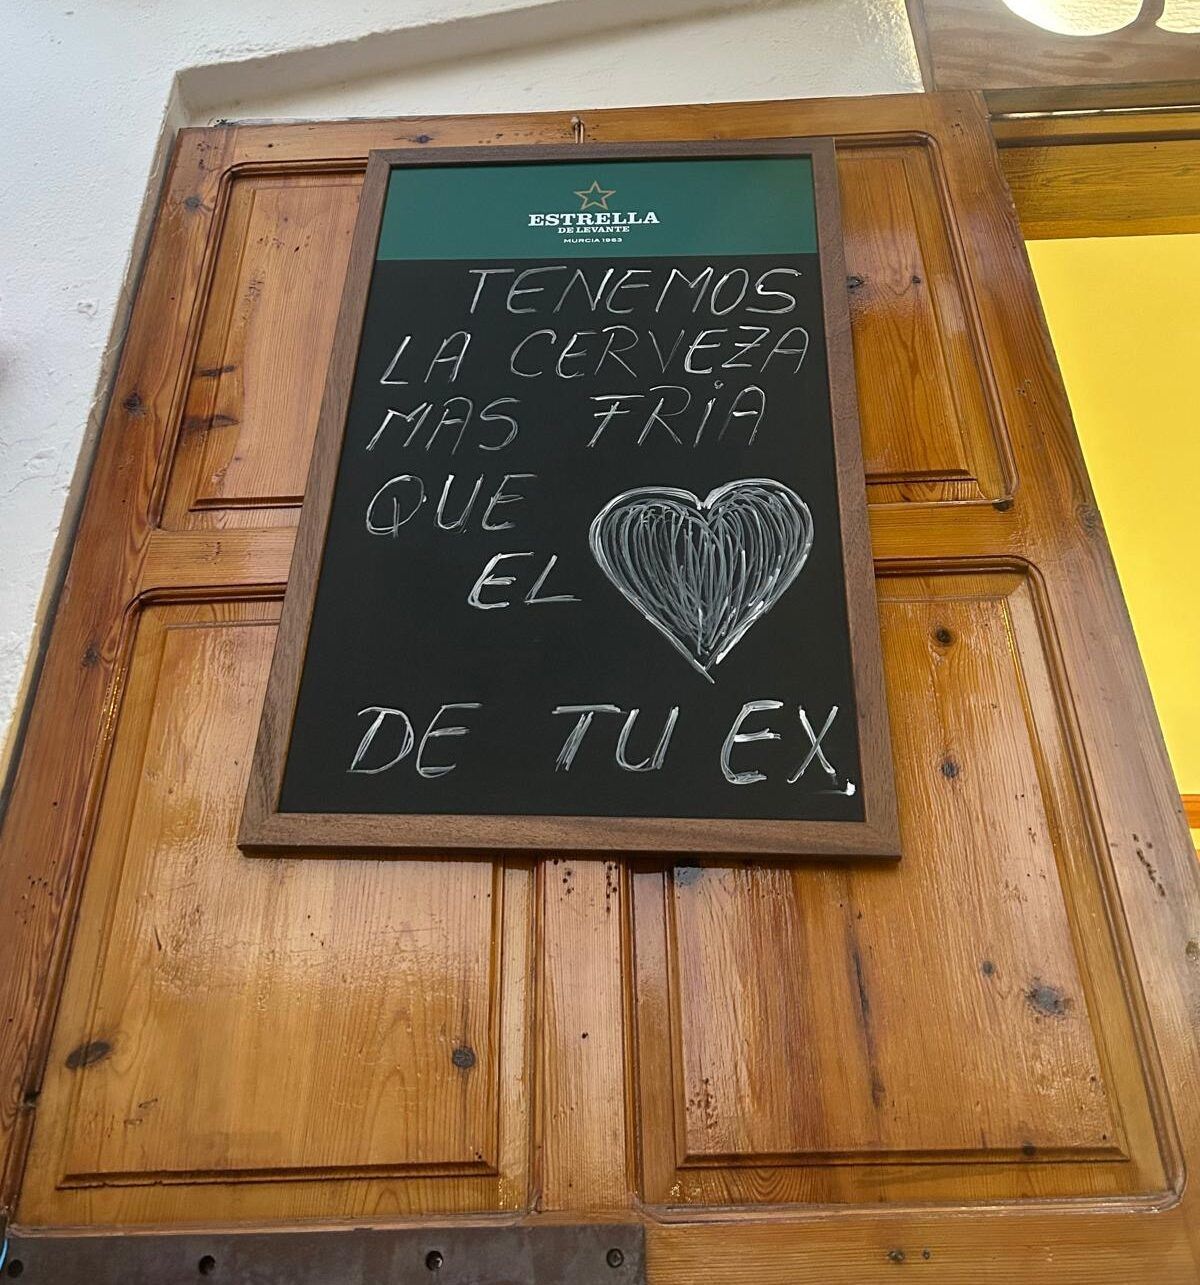 ESTRELLA
DE LEVANTE
MURCIA 1963
TENEMOS
LA CERVEZA
MAS FRIA
QUE
EL
DE TU EX.